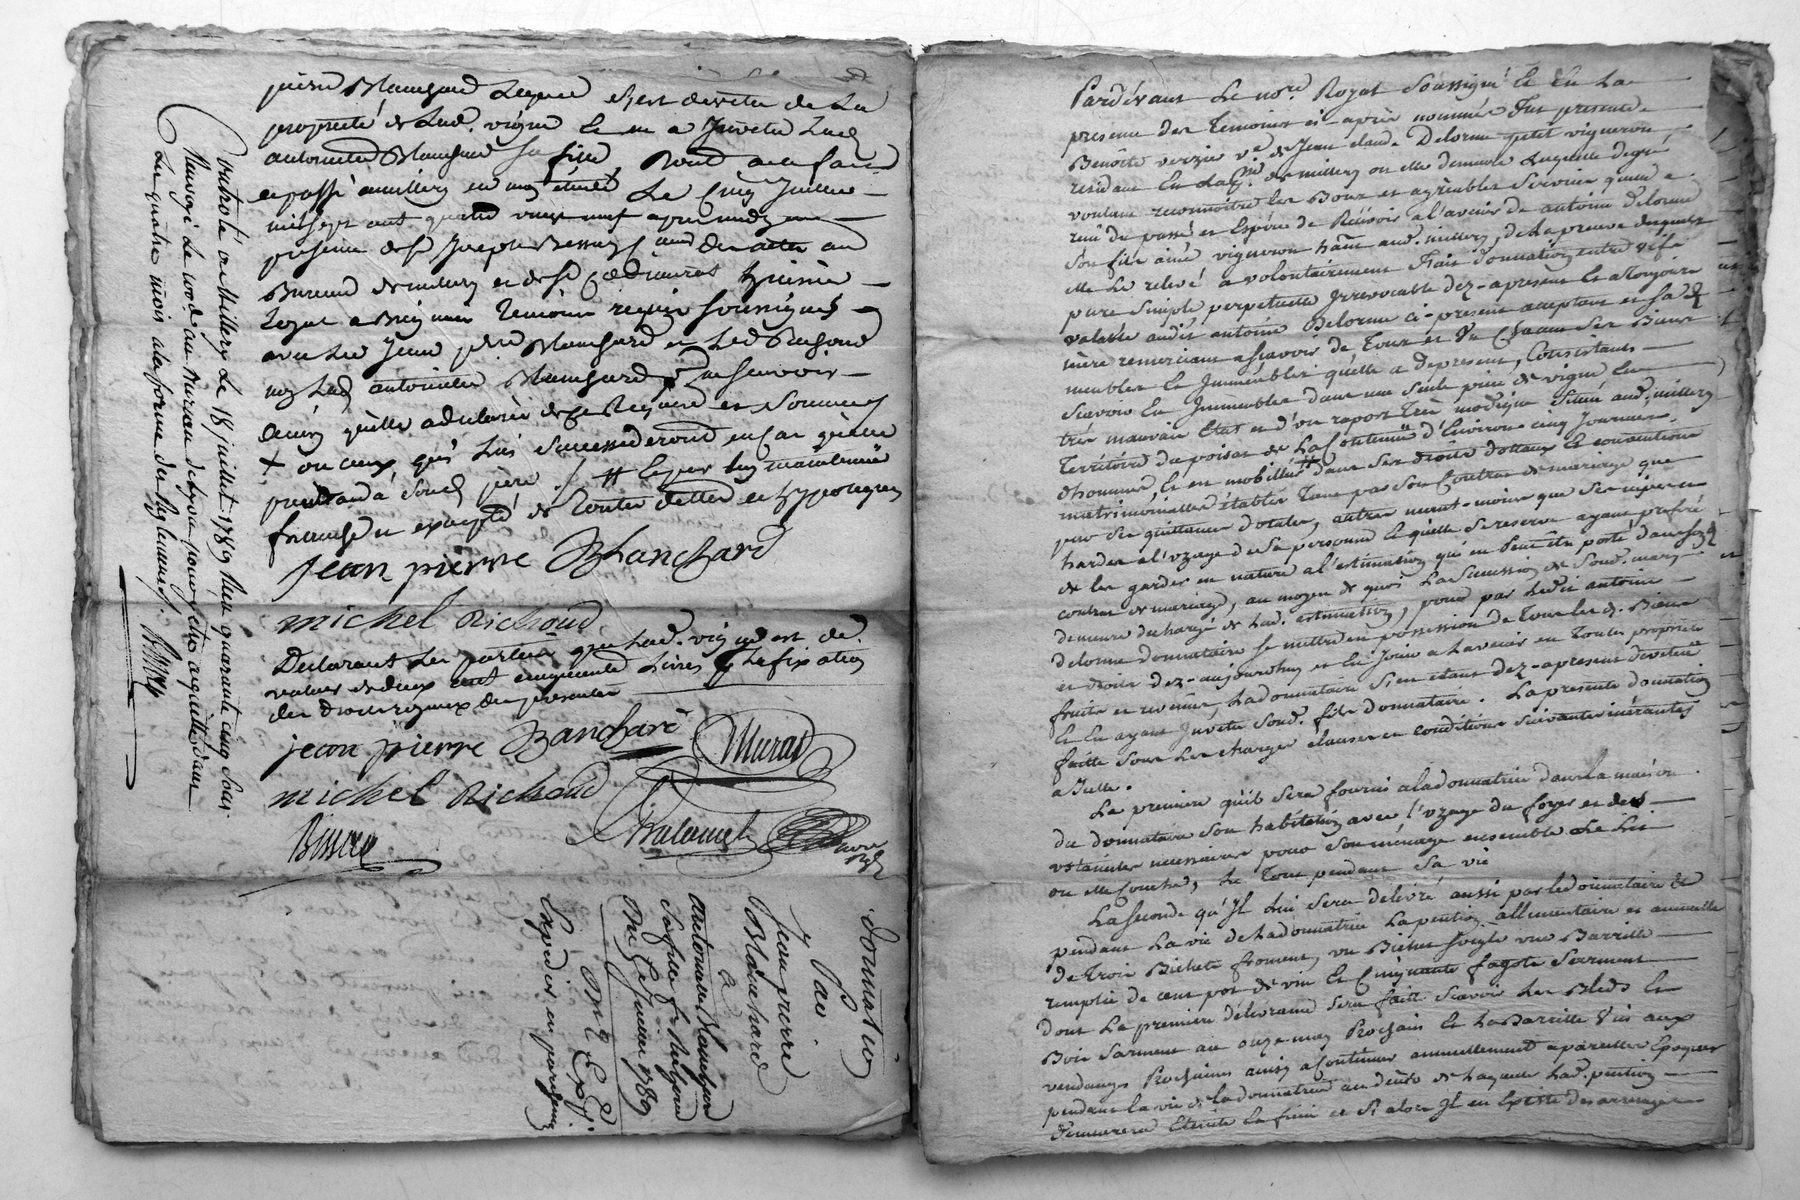 pierre Blanchard Lequel s'est devetu de La
propriété de Lad. vigne Et en a Investu Lad.
antoinette Blanchard sa fille, Dont acte fait
et passé a millery en mon étude Le Cinq Juillet
mil sept cent quatre vingt neuf apres midy en
presence de Sr Joseph Bessney Cand des actes au
Bureau de millery et de Sr
avec Led Jean pierre Blanchard et Led Richoud
non Lad antoinette Blanchard pour ne sçavoir
ainsy qu'elle a declaré de ce Requise et Sommée
+ ou ceux qui Lui succederont en cas qu'elle
predeceda Soud. pere ./. # Et par luy maintenüe
franche et excepté de Toutes dettes et hypoteques
jean pierre Blanchard
michel Richoud
Declarant Les parties que Lad. vigne est de
valeur de deux cent cinquante Livres p. La fixation
des Droits royaux des presentes
jean pierre Blanchard
Murat
michel Richoud
Controlé a Millery Le 18 juillet 1789 Reçu quarante cinq sous
Renvoyé Le au Bureau de pour etre acquitté dans
Les quatre mois a la forme des Reglements.
Donnation
Par
Jean pierre
Blanchard
a
antoinette Blanchard
Sa fille fe Richoud
Du 5 Juillet 1789
Expedier en parchemin
Pardevant Le nore. Royal Soussigné Et En La
presence des Temoins ci-après nommés Fut presente
Benoîte verzier ve. de Jean claude Delorme petit vigneron,
residant En La de millery ou elle demeure Laquelle de gré
voulant reconnoitre Les Bons et agréables Services qu'elle a
reçu du passé et Espere de Recevoir a l'avenir de antoine Delorme
Son fils ainé vigneron aud. millery, de La preuve desquels
elle Le relevé a volontairement Fait Donnation entre vifs
pure Simple perpetuelle Irrevocable dez-apresent Et a Toujours
valable audit antoine Delorme ci-present acceptant et Sa d.
mère remerciant asçavoir de Tous et Un Chacun Ses Biens
meubles Et Immeubles qu'elle a de present, Consistants
Scavoir En Immeubles dans une Seule piece de vigne En
très mauvais Etat et d'un raport Très modique Situé aud. millery
Territoire du poisat de La Contenüe d'Environ cinq Journées
d'hommes, Et en mobilier # dans Ses droits dotaux Et conventions
matrimoniales établies Tant par Son Contrat de mariage que
par des quittances dotales, autres meubles que Ses nipes et
hardes a l'Uzage de Sa personne Et qu'elle Se reserve ayant preferé
de Les garder en nature a l'estimation qui en Peut être porté dans Sond.
contrat de mariage, au moyen de quoi La Sucession de Soud. mary
demeure dechargé de Lad. estimation, pour par Ledit antoine
Delorme donnataire se mettre en possession de Tous Les d. Biens
et droits dez-aujourdhuy et En Jouir a L'avenir en Toutes proprieté
fruits et revenus, La donnatrice S'en etant dez-apresent devetue
Et En ayant Investu Soud. fils donnataire. La presente donnation
faitte Sous Les charges clauses et conditions Suivantes inérantes
a Icelle.
La premiere qu'il Sera fourni a la donnatrice dans La maison
du donnataire Son habitation avec l'uzage du foyer et des
ustanciles necessaires pour Son ménage ensemble Le Lit
ou elle couche, Le Tout pendant Sa vie
La Seconde qu'Il Lui Sera delivré aussi par Le donnataire Et
pendant La vie de La donnatrice La pention allimentaire et annuelle
de Trois Bichets froment, un Bichet Soigle une Barrille
remplie de cent pot de vin Et Cinquante fagots Sarment
dont La premiere délivrance Sera faitte Scavoir Les Bleds Et
Bois Sarment au onze may Prochain Et La Barrille Vin aux
vendanges Prochaines ainsy a Continuer annuellement a pareilles Epoques
pendant La vie de La donnatrice au déces de Laquelle Lad. pention
demeurera Eteinte Et finie et Si alors Il en Existe des arrerages